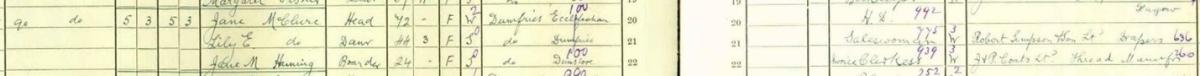 go do 5 3 5 3 Jane McClure Head 72 - F W Dumfries Ecclefechan 100 20
Lily E. do Daur 44 3 F S do Dumfries 21
Jane M Huming Boarder 24 - F S do 100 22
20 992
21 Saleswoman 775 3 W Robert Simpson & Son Ltd Drapers 686
22 Clerkess 939 3 W J & P Coats Ltd Thread Manufrs 360
252 2